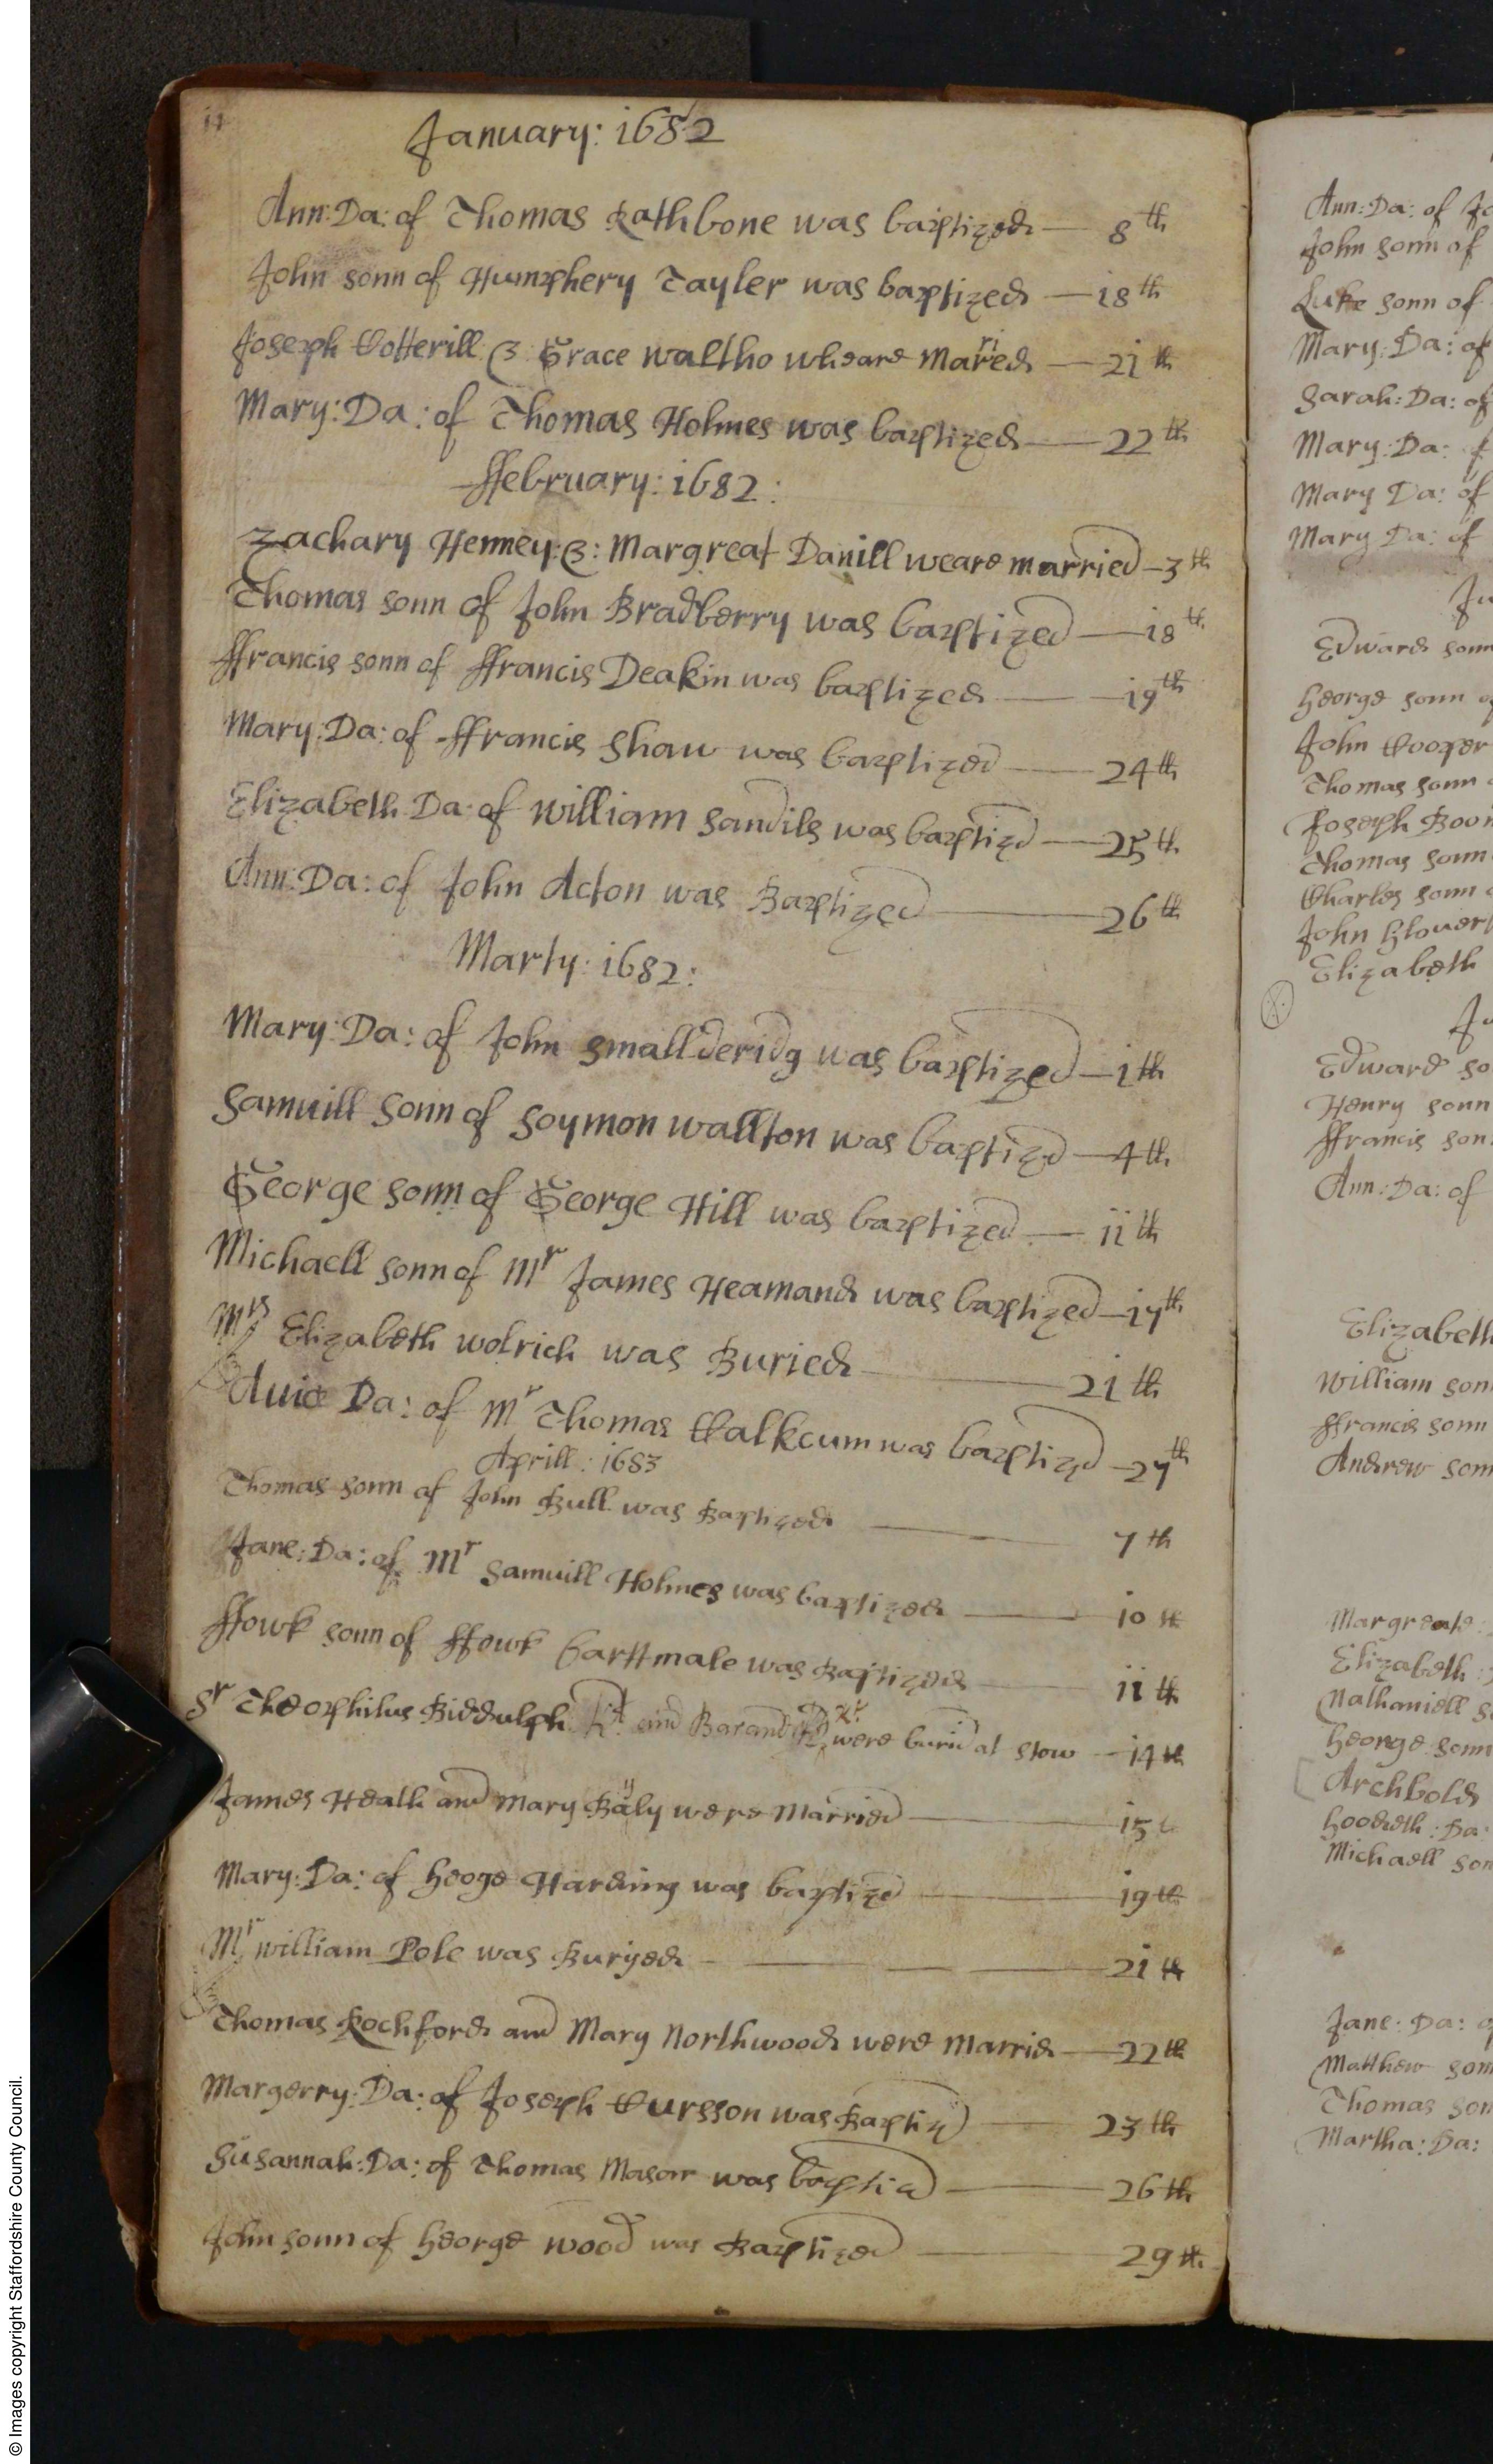 January: 1682
Ann: Da: of Thomas Rathbone was baptized — 8th
John sonn of Humphery Tayler was baptized — 18th
Joseph Cotterill & Grace waltho wheare Marired — 21th
Mary: Da: of Thomas Holmes was baptized — 22th
ffebruary: 1682:
Zachary Henney: &: Margreat Danill weare married — 3th
Thomas sonn of John Bradberry was baptized — 18th
ffrancis sonn of ffrancis Deakin was baptized — 19th
Mary: Da: of ffrancis Shaw was baptized — 24th
Elizabeth Da: of william Sandils was baptizd — 25th
Ann: Da: of John Acton was Baptized — 26th
Marty: 1682:
Mary: Da: of John Smallderidg was baptized — 1th
Samuill Sonn of Soymon wallton was baptized — 4th
George sonn of George Hill was baptized — 11th
Michaell sonn of Mr James Heamand was baptized — 17th
Mrs Elizabeth wolrich was Buried — 21th
Auic Da: of Mr Thomas Calkcum was baptizd — 27th
Aprill: 1683
Thomas sonn of John Bull was Baptized — 7th
Jane: Da: of Mr Samuill Holmes was baptized — 10th
ffowk sonn of ffowk Carttmale was Baptized — 11th
Sr Theophilus Biddulph Kt and were burid at Stow — 14th
James Heath and Mary Baly were Married — 15
Mary: Da: of Geoge Harding was baptized — 19th
Mr william Pole was Buryed — 21th
Thomas Rochford and Mary Northwood were Marrid — 22th
Margerry: Da: of Joseph Cursson was Baptizd — 23th
Susannah: Da: of Thomas Mason was baptizd — 26th
John sonn of George wood was Baptized — 29th
Ann: Da: of
John sonn of
Luke sonn of
Mary: Da: of
Sarah: Da: of
Mary: Da:
Mary Da: of
Mary Da: of
Edward sonn
George sonn
John Cooper
Thomas sonn
Joseph
Thomas sonn
Charles sonn
John Glover
Elizabeth
Edward
Henry sonn
ffrancis son
Ann: Da: of
Elizabeth
William son
ffrancis sonn
Andrew sonn
Margreate
Elizabeth
Nathaniell
George sonn
Archbold
Goodeth: Da:
Michaell son
Jane: Da:
Matthew sonn
Thomas son
Martha: Da:
© Images copyright Staffordshire County Council.